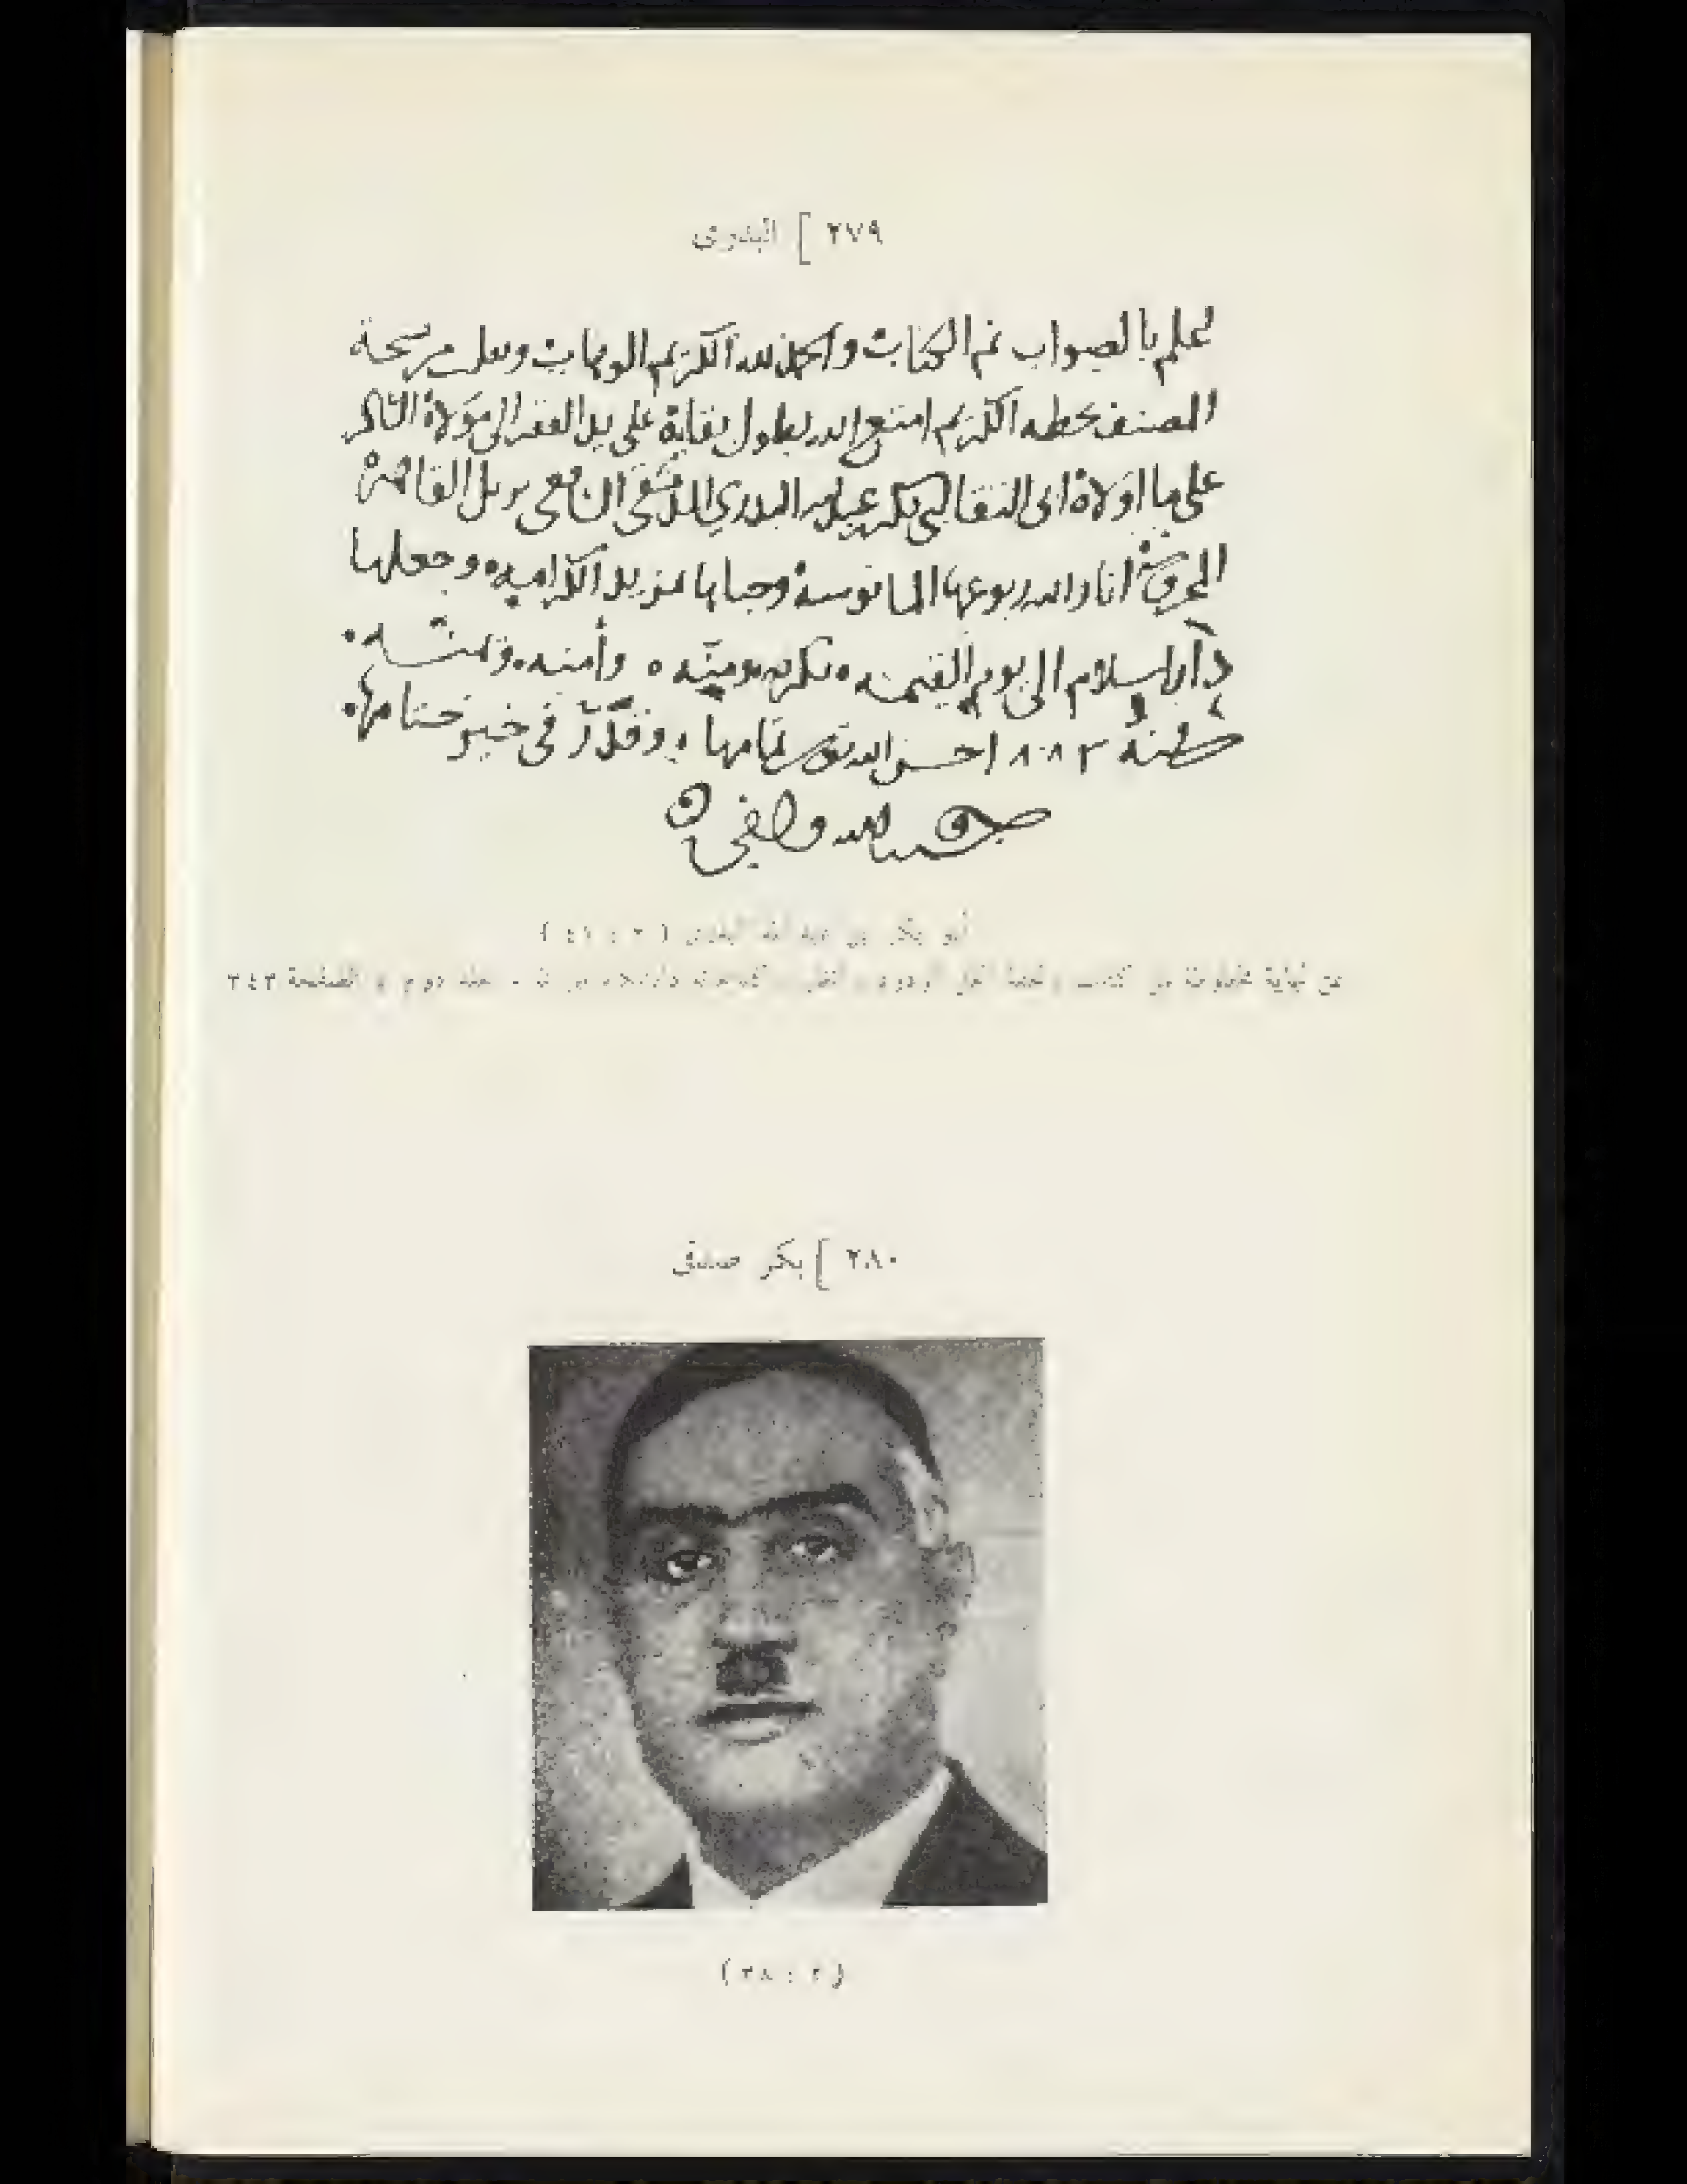 ٢٧٩ ] البدرى
اعلم بالصواب تم الكتاب والحمد لله الكريم الوهاب ونقل من نسخة
المصنف بخطه الكريم امتع الله بطول بقايه على يد الفقير الى مولاه الشاكر
على ما اولاه ابى التقا ابى بكر بن عبد الله البدري الدمشقى الشافعى نزيل القاهرة
المحروسة انار الله ربوعها المانوسة وحباها بمزيد الكرامه وجعلها
دار اسلام الى يوم القيمه بكرمه ومنّه وأمنه ويمنه
سنة احسن الله تمامها وقدّر فى خير ختامها
حسبنا الله وكفى
أبو بكر بن عبد الله البدرى ( ٢ : ٤١ )
عن نهاية مخطوطة من كتاب جلد دوم ، الصفحة ٣٤٣
٢٨٠ ] بكر صدقى
( ٢ : ٣٨ )